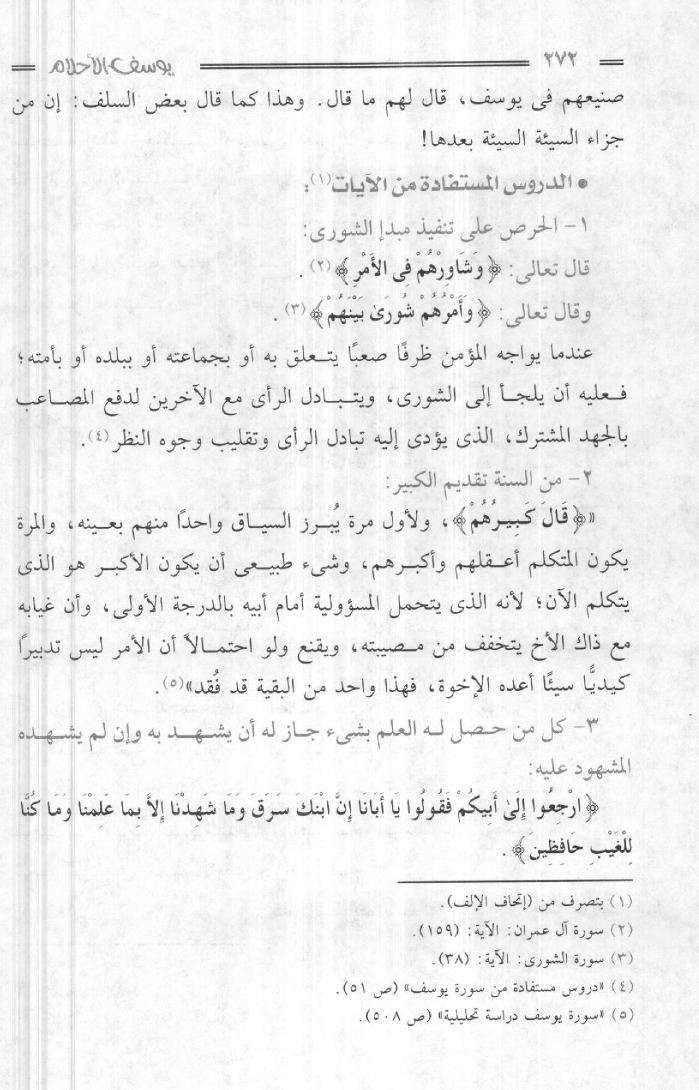 ٢٧٢ يوسف الأحلام
صنيعهم فى يوسف، قال لهم ما قال. وهذا كما قال بعض السلف: إن من
جزاء السيئة السيئة بعدها!
• الدروس المستفادة من الآيات(١):
١- الحرص على تنفيذ مبدإ الشورى:
قال تعالى: ﴿وَشَاوِرْهُمْ فِى الأَمْرِ﴾(٢).
وقال تعالى: ﴿وَأَمْرُهُمْ شُورَىٰ بَيْنَهُمْ﴾(٣).
عندما يواجه المؤمن ظرفًا صعبًا يتعلق به أو بجماعته أو ببلده أو بأمته؛
فعليه أن يلجأ إلى الشورى، ويتبادل الرأى مع الآخرين لدفع المصاعب
بالجهد المشترك، الذى يؤدى إليه تبادل الرأى وتقليب وجوه النظر(٤).
٢- من السنة تقديم الكبير:
«﴿قَالَ كَبِيرُهُمْ﴾، ولأول مرة يُبرز السياق واحدًا منهم بعينه، والمرة
يكون المتكلم أعقلهم وأكبرهم، وشىء طبيعى أن يكون الأكبر هو الذى
يتكلم الآن؛ لأنه الذى يتحمل المسؤولية أمام أبيه بالدرجة الأولى، وأن غيابه
مع ذاك الأخ يتخفف من مصيبته، ويقنع ولو احتمالاً أن الأمر ليس تدبيرًا
كيديًّا سيئًا أعده الإخوة، فهذا واحد من البقية قد فُقد»(٥).
٣- كل من حصل له العلم بشىء جاز له أن يشهد به وإن لم يشهده
المشهود عليه:
﴿ارْجِعُوا إِلَىٰ أَبِيكُمْ فَقُولُوا يَا أَبَانَا إِنَّ ابْنَكَ سَرَقَ وَمَا شَهِدْنَا إِلاَّ بِمَا عَلِمْنَا وَمَا كُنَّا
لِلْغَيْبِ حَافِظِينَ﴾.
(١) بتصرف من (إتحاف الإلف).
(٢) سورة آل عمران: الآية: (١٥٩).
(٣) سورة الشورى: الآية: (٣٨).
(٤) «دروس مستفادة من سورة يوسف» (ص ٥١).
(٥) «سورة يوسف دراسة تحليلية» (ص ٥٠٨).